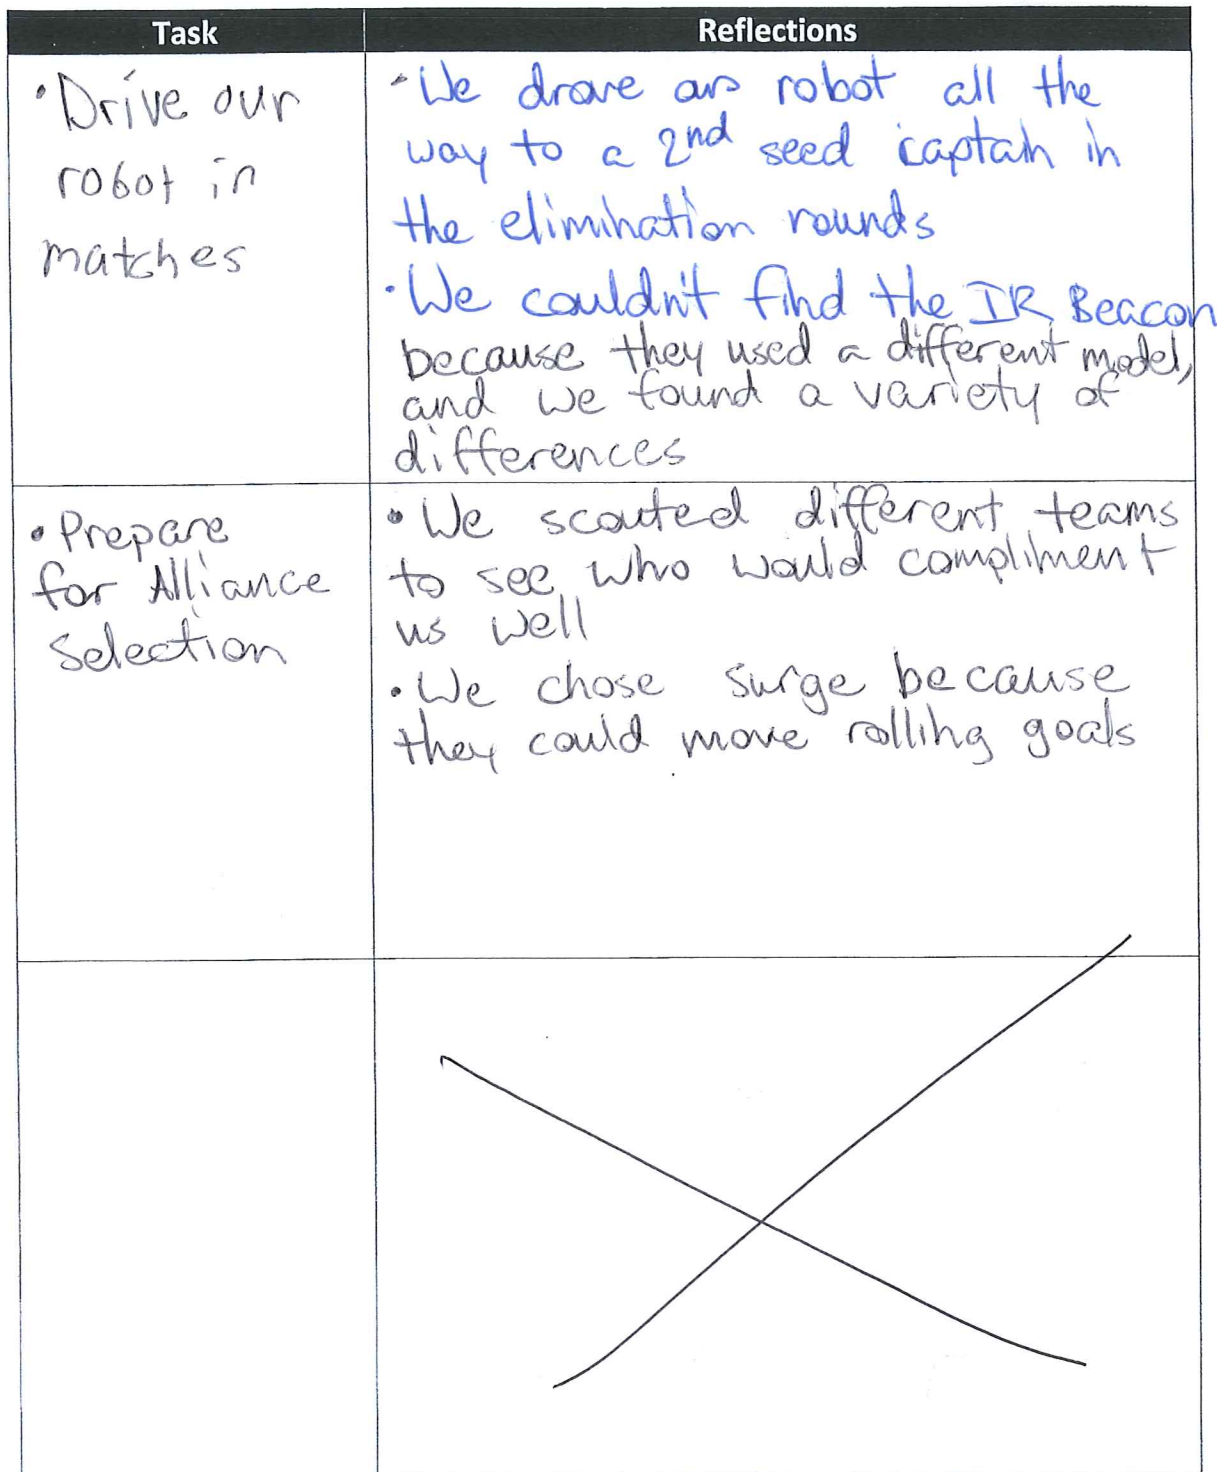 Task Reflections
• Drive our
robot in
matches
• We drove our robot all the
way to a 2nd seed captain in
the elimination rounds
• We couldn't find the IR Beacon
because they used a different model,
and we found a variety of
differences
• Prepare
for Alliance
Selection
• We scouted different teams
to see who would compliment
us well
• We chose surge because
they could move rolling goals